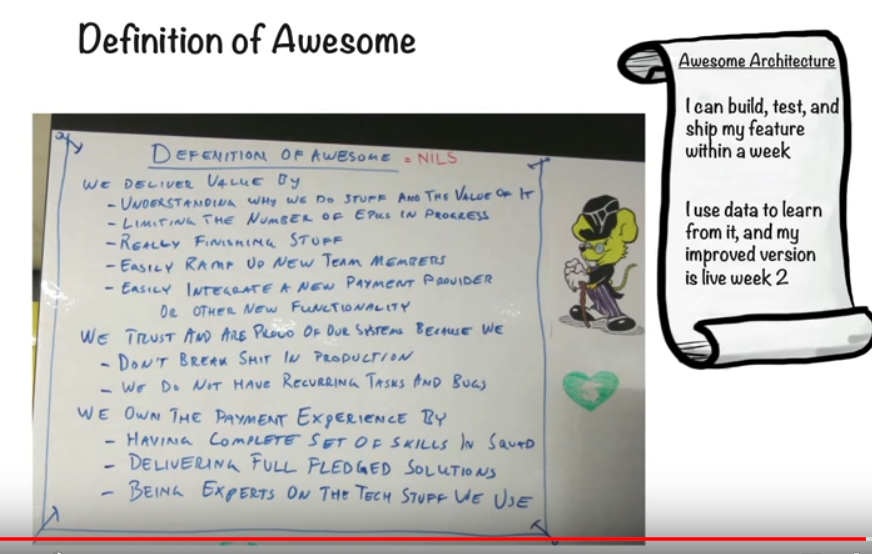 Definition of Awesome
DEFENITION OF AWESOME = NILS
WE DELIVER VALUE BY
- UNDERSTANDING WHY WE DO STUFF AND THE VALUE OF IT
- LIMITING THE NUMBER OF EPICS IN PROGRESS
- REALLY FINISHING STUFF
- EASILY RAMP UP NEW TEAM MEMBERS
- EASILY INTEGRATE A NEW PAYMENT PROVIDER
OR OTHER NEW FUNCTIONALITY
WE TRUST AND ARE PROUD OF OUR SYSTEMS BECAUSE WE
- DON'T BREAK SHIT IN PRODUCTION
- WE DO NOT HAVE RECURRING TASKS AND BUGS
WE OWN THE PAYMENT EXPERIENCE BY
- HAVING COMPLETE SET OF SKILLS IN SQUAD
- DELIVERING FULL FLEDGED SOLUTIONS
- BEING EXPERTS ON THE TECH STUFF WE USE
Awesome Architecture
I can build, test, and
ship my feature
within a week
I use data to learn
from it, and my
improved version
is live week 2